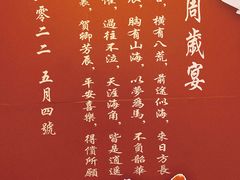 周歲宴
橫有八荒，前途似海，來日方長
胸有山海，以夢為馬，不負韶華
過往不泣，天涯海角，皆是逍遙
賀卿芳辰，平安喜樂，得償所願
二零二二 五月四號